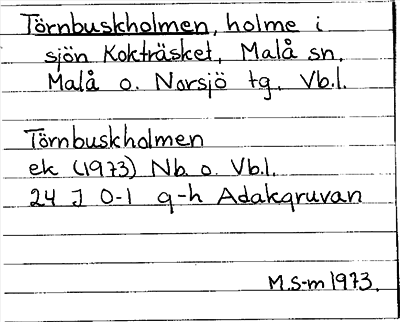 Törnbuskholmen, holme i
sjön Kokträsket, Malå sn,
Malå o. Norsjö tg. Vb.l.
Törnbuskholmen
ek (1973) Nb. o. Vb.l.
24 J 0-1 g-h Adakgruvan
M.S-m 1973.